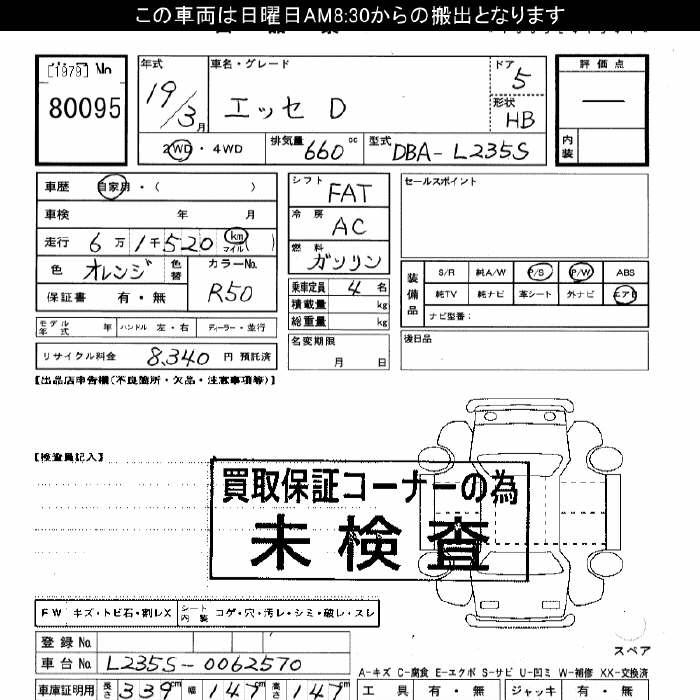 この車両は日曜日AM8:30からの搬出となります
[1979] No 80095
年式 19/3月
車名・グレード エッセ D
ドア 5
形状 HB
評価点 —
内装
2WD・4WD 排気量 660cc 型式 DBA-L235S
車歴 自家用・( )
車検 年 月
走行 6万1千520 km マイル ( )
色 オレンジ 色替 カラーNo. R50
保証書 有・無
モデル年式 年 ハンドル 左・右 ディーラー・並行
リサイクル料金 8,340 円 預託済
シフト FAT
冷房 AC
燃料 ガソリン
乗車定員 4 名
積載量 kg
総重量 kg
名変期限 月 日
セールスポイント
装備品 S/R 純A/W P/S P/W ABS
純TV 純ナビ 革シート 外ナビ エアB
ナビ型番:
後日品
【出品店申告欄(不良箇所・欠品・注意事項等)】
【検査員記入】
買取保証コーナーの為
未検査
FW キズ・トビ石・割レX シート内装 コゲ・穴・汚レ・シミ・破レ・スレ
登録No.
車台No. L235S-0062570
車庫証明用 長さ 339cm 幅 147cm 高さ 147cm
スペア
A-キズ C-腐食 E-エクボ S-サビ U-凹ミ W-補修 XX-交換済
工具 有・無 ジャッキ 有・無